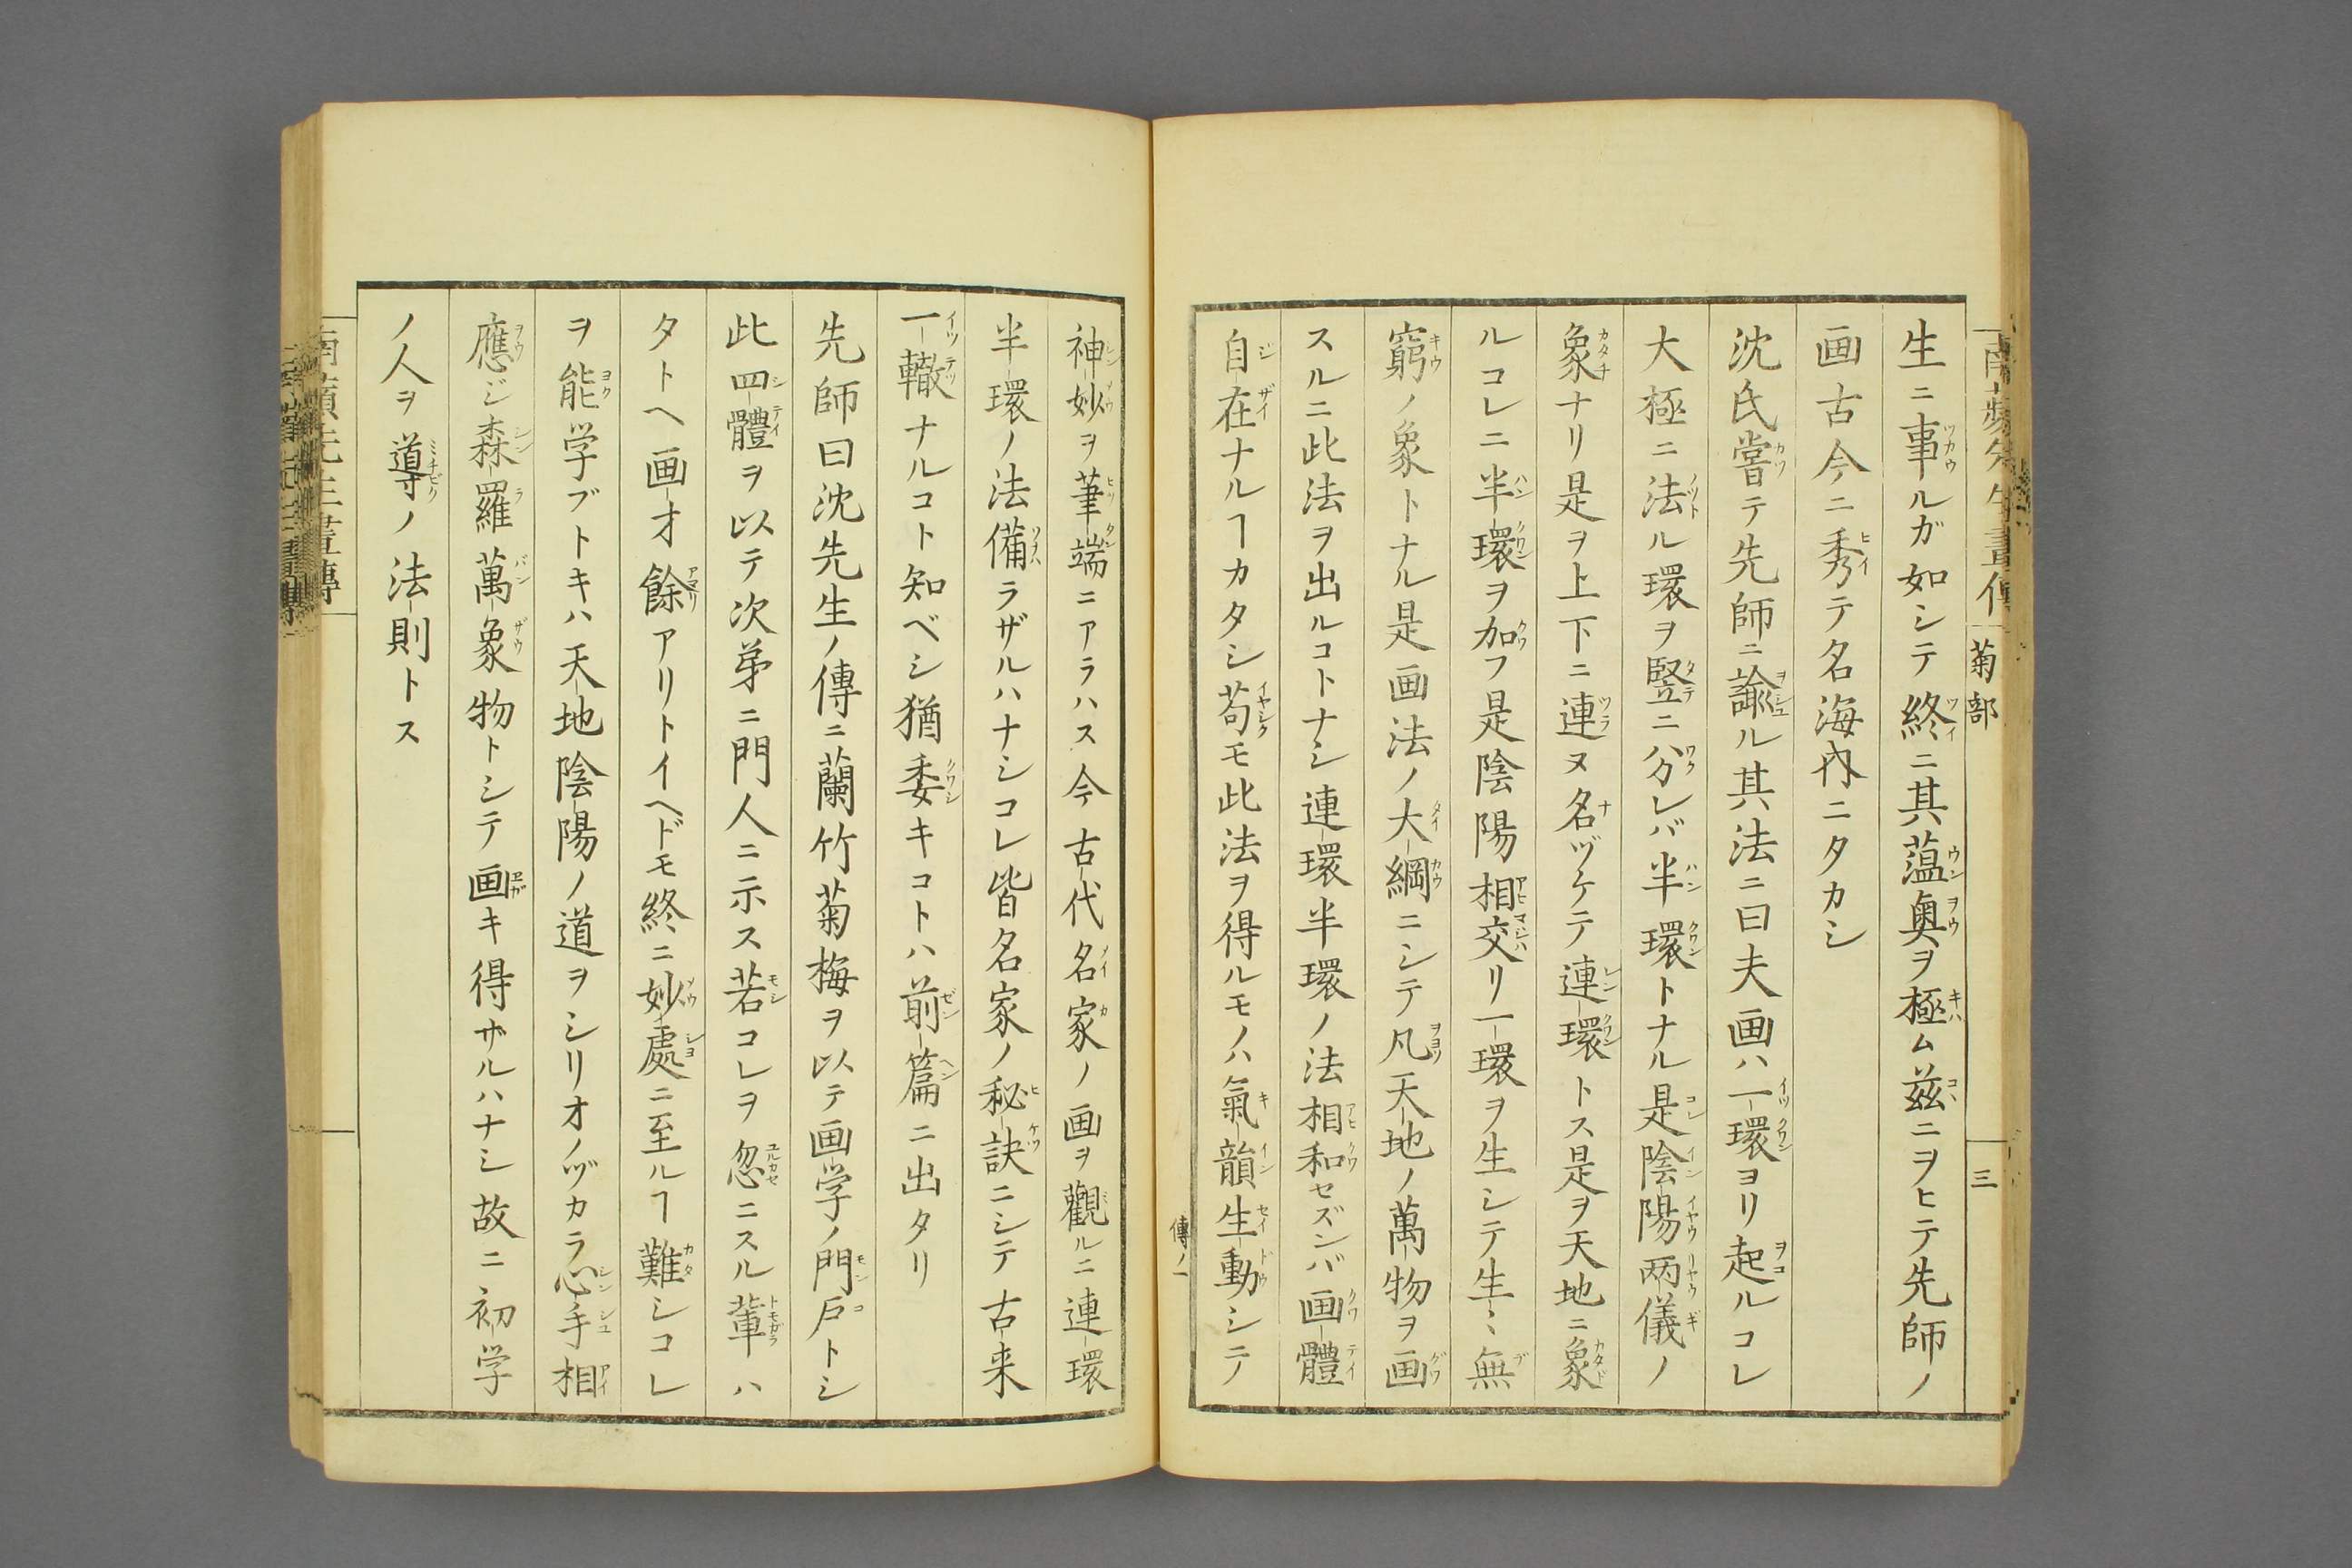 菊部
三
生ニ事ルガ如シテ終ニ其薀奥ヲ極ム茲ニヲヒテ先師ノ
画古今ニ秀テ名海内ニタカシ
沈氏嘗テ先師ニ諭ル其法ニ曰夫画ハ一環ヨリ起ルコレ
大極ニ法ル環ヲ竪ニ分レバ半環トナル是陰陽両儀ノ
象ナリ是ヲ上下ニ連ヌ名ヅケテ連環トス是ヲ天地ニ象
ルコレニ半環ヲ加フ是陰陽相交リ一環ヲ生シテ生〻無
窮ノ象トナル是画法ノ大綱ニシテ凡天地ノ萬物ヲ画
スルニ此法ヲ出ルコトナシ連環半環ノ法相和セズンバ画體
自在ナルヿカタシ苟モ此法ヲ得ルモノハ氣韻生動シテ
傳ノ一
神妙ヲ筆端ニアラハス今古代名家ノ画ヲ觀ルニ連環
半環ノ法備ラザルハナシコレ皆名家ノ秘訣ニシテ古来
一轍ナルコト知ベシ猶委キコトハ前篇ニ出タリ
先師曰沈先生ノ傳ニ蘭竹菊梅ヲ以テ画学ノ門戸トシ
此四體ヲ以テ次第ニ門人ニ示ス若コレヲ忽ニスル輩ハ
タトヘ画才餘アリトイヘドモ終ニ妙處ニ至ルヿ難シコレ
ヲ能学ブトキハ天地陰陽ノ道ヲシリオノヅカラ心手相
應ジ森羅萬象物トシテ画キ得ザルハナシ故ニ初学
ノ人ヲ導ノ法則トス